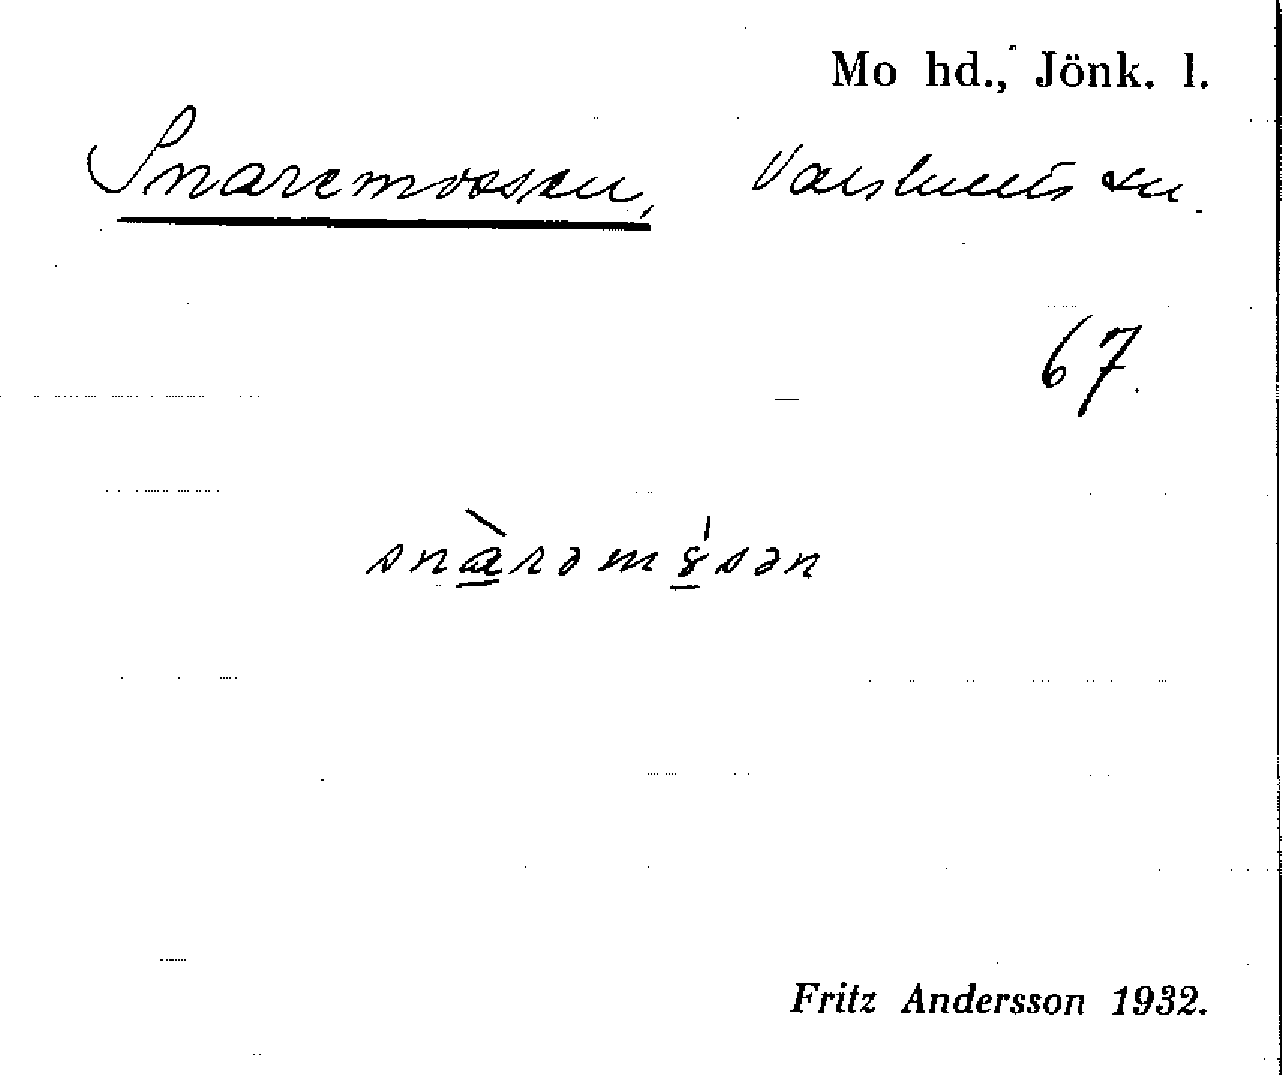 Mo hd., Jönk. l.
Snaremossen, sn.
67.
snàrəmɵ́sən
Fritz Andersson 1932.